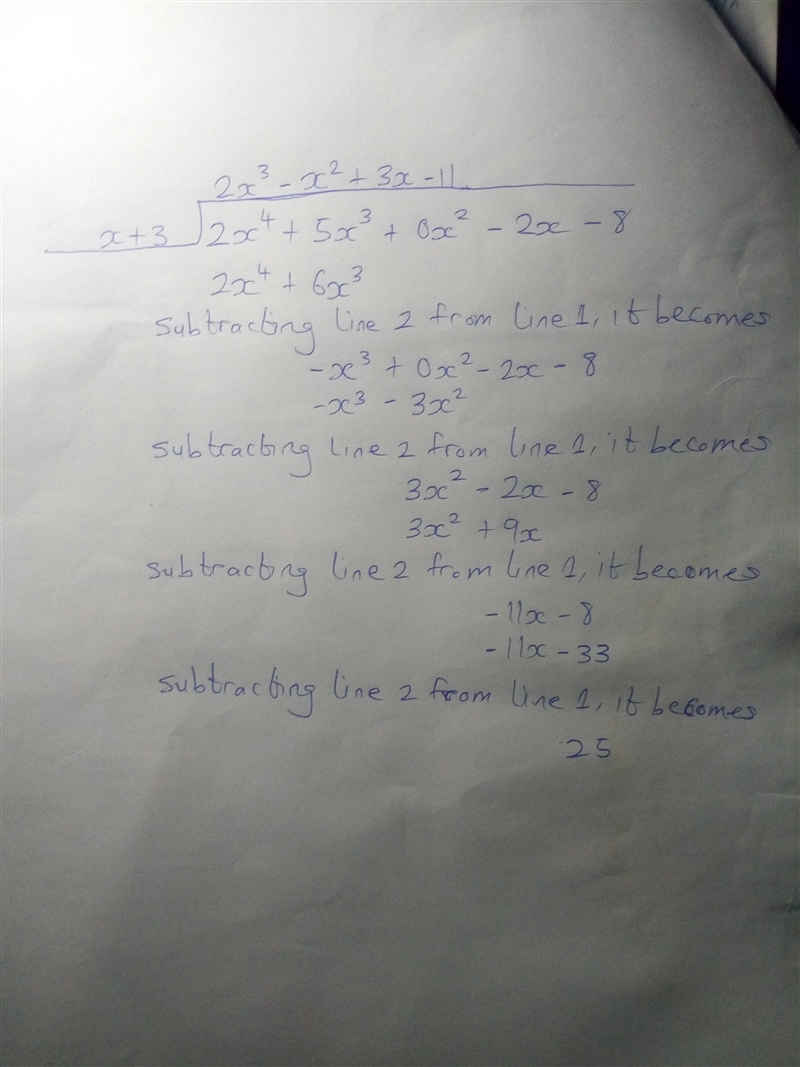 2x³ - x² + 3x - 11
x+3 2x⁴ + 5x³ + 0x² - 2x - 8
2x⁴ + 6x³
subtracting line 2 from line 1, it becomes
-x³ + 0x² - 2x - 8
-x³ - 3x²
subtracting line 2 from line 1, it becomes
3x² - 2x - 8
3x² + 9x
subtracting line 2 from line 1, it becomes
-11x - 8
-11x - 33
subtracting line 2 from line 1, it becomes
25